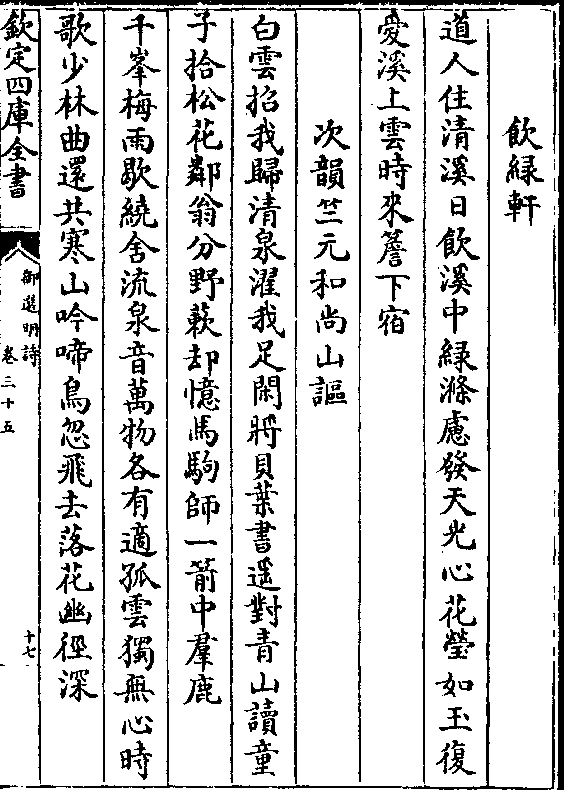 飲緑軒
道人住清溪日飲溪中緑滌慮發天光心花瑩如玉復
愛溪上雲時來簷下宿
次韻竺元和尚山謳
白雲招我歸清泉濯我足閑將貝葉書遥對青山讀童
子拾松花鄰翁分野蔌却憶馬駒師一箭中羣鹿
千峯梅雨歇繞舍流泉音萬物各有適孤雲獨無心時
歌少林曲還共寒山吟啼鳥忽飛去落花幽徑深
欽定四庫全書
御選明詩
卷三十五
十七